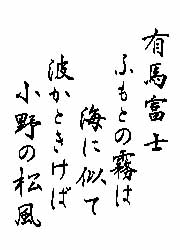 有馬富士
ふもとの霧は
海に似て
波かときけば
小野の松風